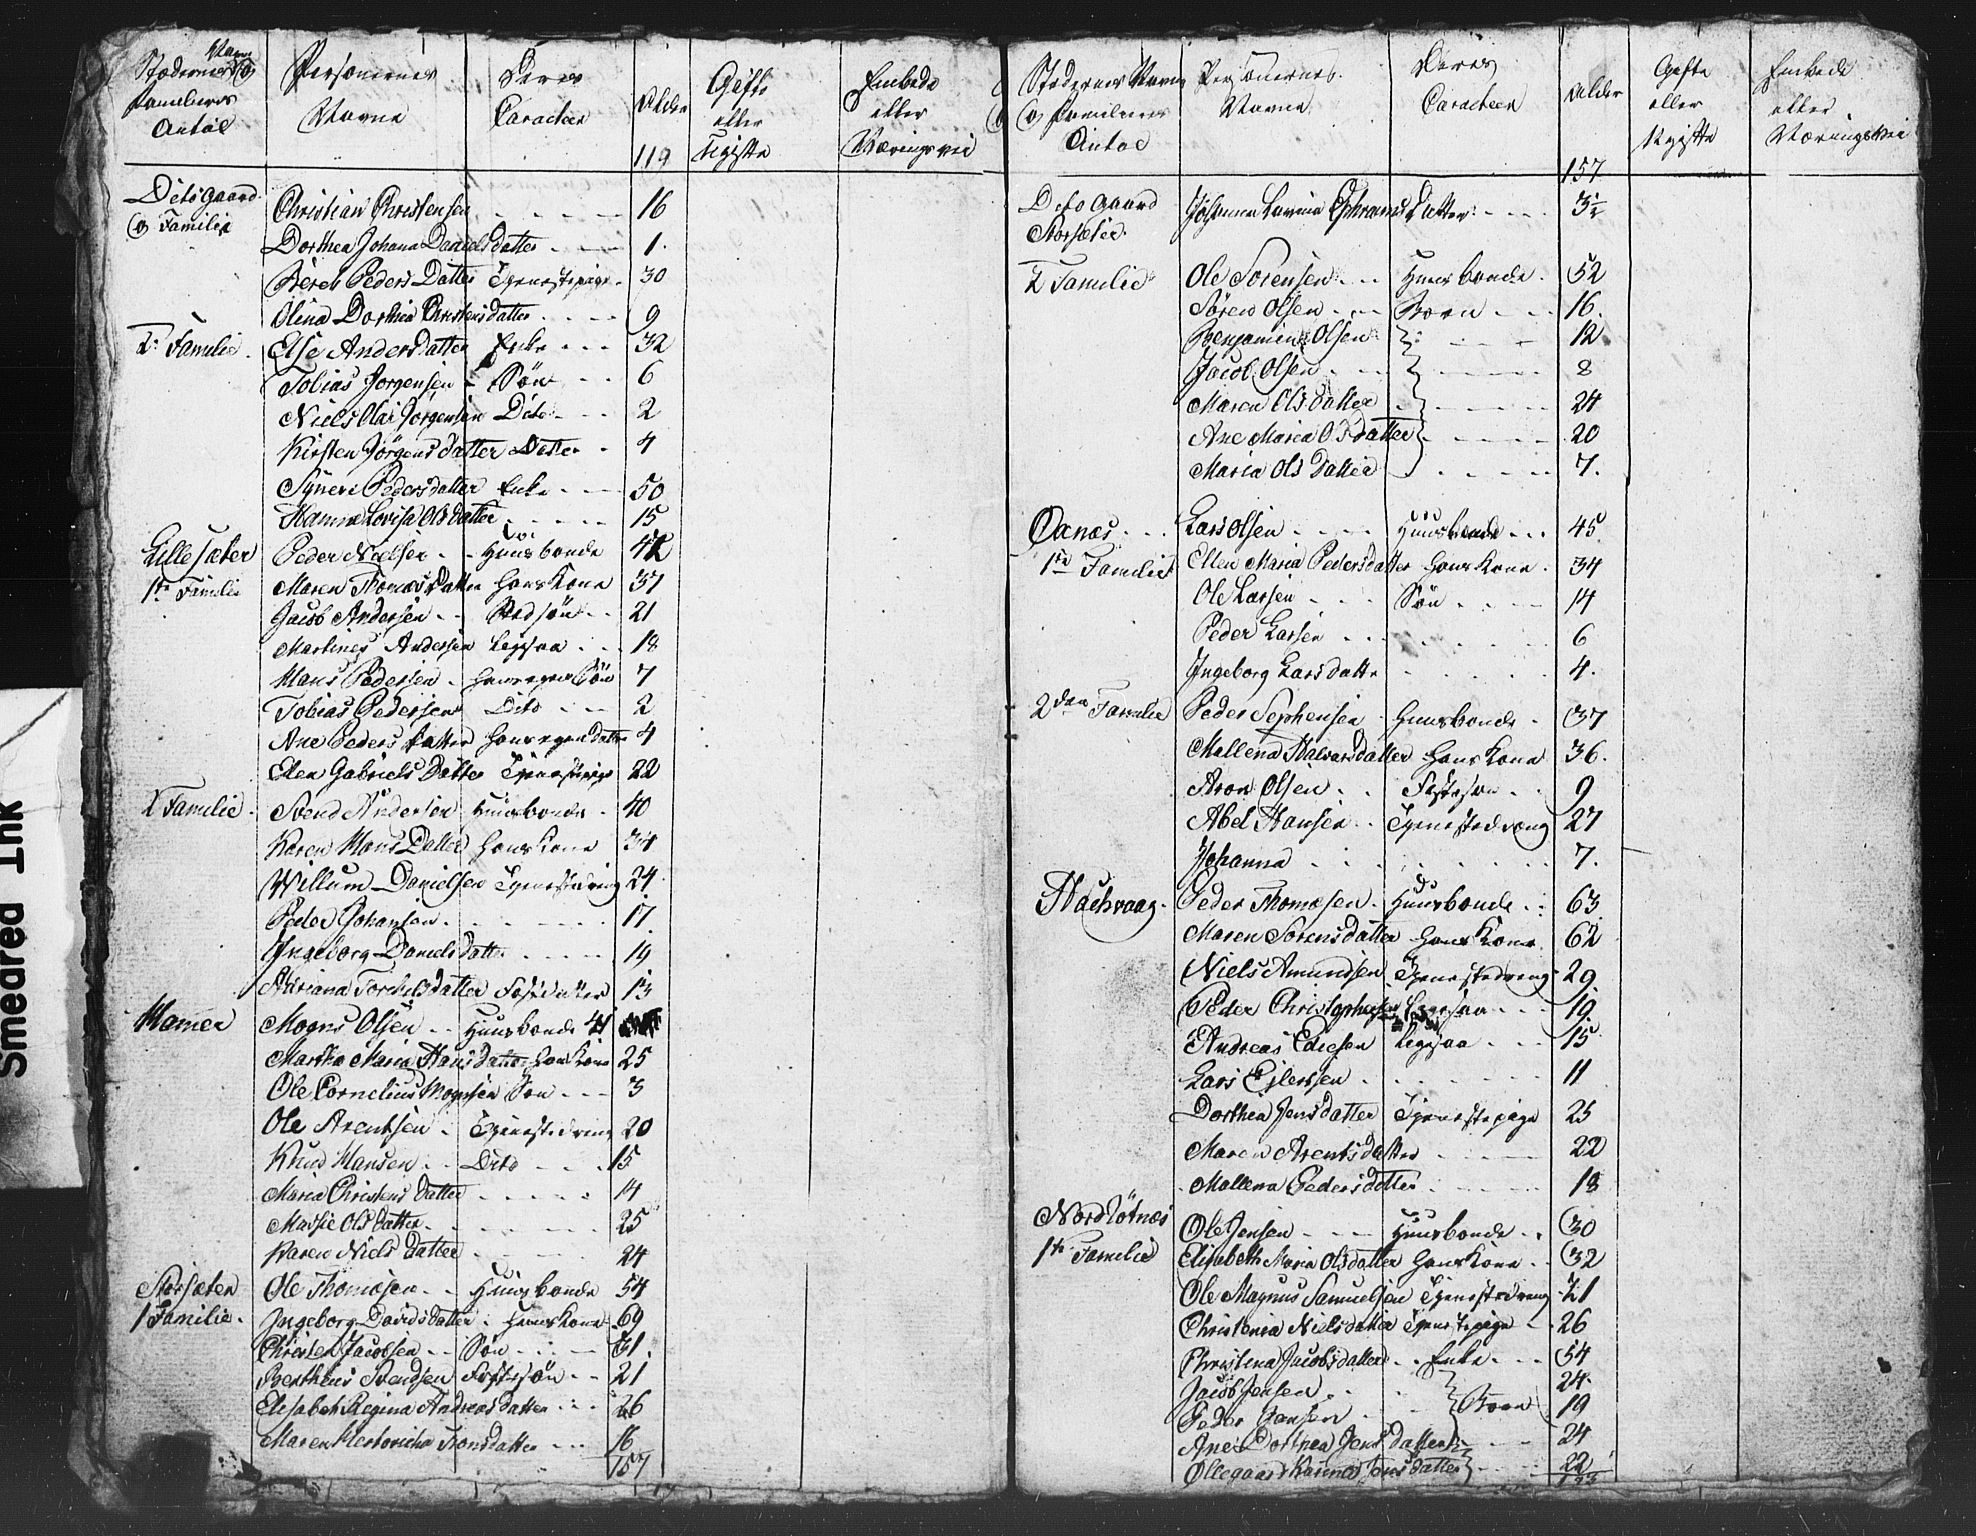 Stædernes Navn
og Familiers
Antal
Personernes
Navne
Deres
Caracteer
Alder
Gifte
eller
Ugifte
Embede
eller
Næringsvei
119
Ditto Gaard
og Familie
Christian Christensen - - - - 16
Dorthea Johana Danielsdatter - - - 1
Beret Peders Datter Tjenestepige - 30
Olina Dorthea Christensdatter - - - 9
2: Familie. Else Andersdatter Enke - - - 32
Tobias Jorgensen - Søn - - 6
Niels Olai Jörgensen Dito - - - 2
Kirsten Jörgensdatter Datter - 4
Synere Pedersdatter Enke - - - 50
Hanna Lovisa Olsdatter - - - - 15
Lille sæter Peder Nielsen - - Huusbonde 42
1te Familie Maren Thomasdatter hans Kone 37
Jacob Andersen - - Stedsön - - 21
Martines Andersen Legsaa - - - 18
Hans Pedersen - hans egen Søn 7
Tobias Pedersen Dito - - - 2
Ane Pedersdatter hans egen datter 4
Elen Gabriels Datter Tjenestepige 22
2 Familie. Svend Andersen Huusbonde - 40
Karen Hans Datter hans Kone 34
Willum Danielsen Tjenestedreng 24
Peder Johansen - - - - - 17
Ingeborg Danielsdatter - - - - 19
Adriana Torchelsdatter Fosterdatter 13
Hamer Mogns Olsen - - Huusbonde 41
Martha Maria Hansdatter hans Kone 25
Ole Cornelius Mognsen Søn - - - 3
Ole Arentsen - Tjenestedreng 20
Knud Hansen - - Dito - - - 15
Maria Christensdatter - - - - - 14
Marsie Olsdatter - - - - - 25
Karen Nielsdatter - - - - 24
Storsæter Ole Thomesen - - Huusbonde 54
1 Familie. Ingeborg Davidsdatter - hans Kone 69
Christen Jacobsen - - Søn - - - 31.
Bertheus Svendsen Fostersön - - 21
Elisabeth Regina Andreasdatter - - - 26
Maren Tronsdatter - - - 16
157
Stædernes Navn
og Familiers
Antal
Personernes
Navne
Deres
Caracteer
Alder
Gifte
eller
Ugifte
Embede
eller
Næringsvei
157
Dito Gaard
Storsæter
Johanna Lavina Ephraimsdatter - - - 3½
2 Familie Ole Sorensen - - - Huusbonde - 52
Sören Olsen - - - Born - - - 16.
Benjamin Olsen - - - 12
Jacob Olsen - - - - 8
Maren Olsdatter - - - - 24
Ane Maria Olsdatter - - - - 20
Maria Olsdatter - - - - 7.
Oxnæs - - - Lars Olsen - - - - Huusbonde - - - 45.
1te Familie Ellen Maria Pedersdatter hans Kone - 34
Ole Larsen - - - Søn - - - - 14
Peder Larsen - - - - - - - 6
Ingeborg Larsdatter - - - - - 4.
2den Familie Peder Sephensen - Huusbonde - 37
Mallena Halvarsdatter hans Kone 36.
Aron Olsen - - Fostersøn - - 9
Abel Hansen - - Tjenestedreng 27
Johanna - - - - - - - 7.
Peder Thomesen - Huusbonde - - 63
Maren Sorensdatter hans Kone 62
Niels Amundsen Tjenestedreng 29.
Peder Christophersen Legsaa - - - 19.
Andreas Edicsen Legsaa - - - 15
Lars Ejlersen - - - - - - - 11
Dorthea Jensdatter Tjenestepige 25
Maren Arentsdatter - - - - 22
Mallena Pedersdatter - - - - 18
Nordlötnæs Ole Jensen - - - Huusbonde - - 30
1te Familie Elisabeth Maria Olsdatter hans Kone - - 32
Ole Magnus Samuelsen Tjenestedreng - 21
Christensa Nielsdatter Tjenestepige - 26
Christina Jacobsdatter - - Enke - - - 54
Jacob Jensen - - - 24.
Peder Jensen - - Born 19
Ane Dorthea Jensdatter - - 24
Ollegaard Karina Jensdatter - - - 22
Smedred Ink